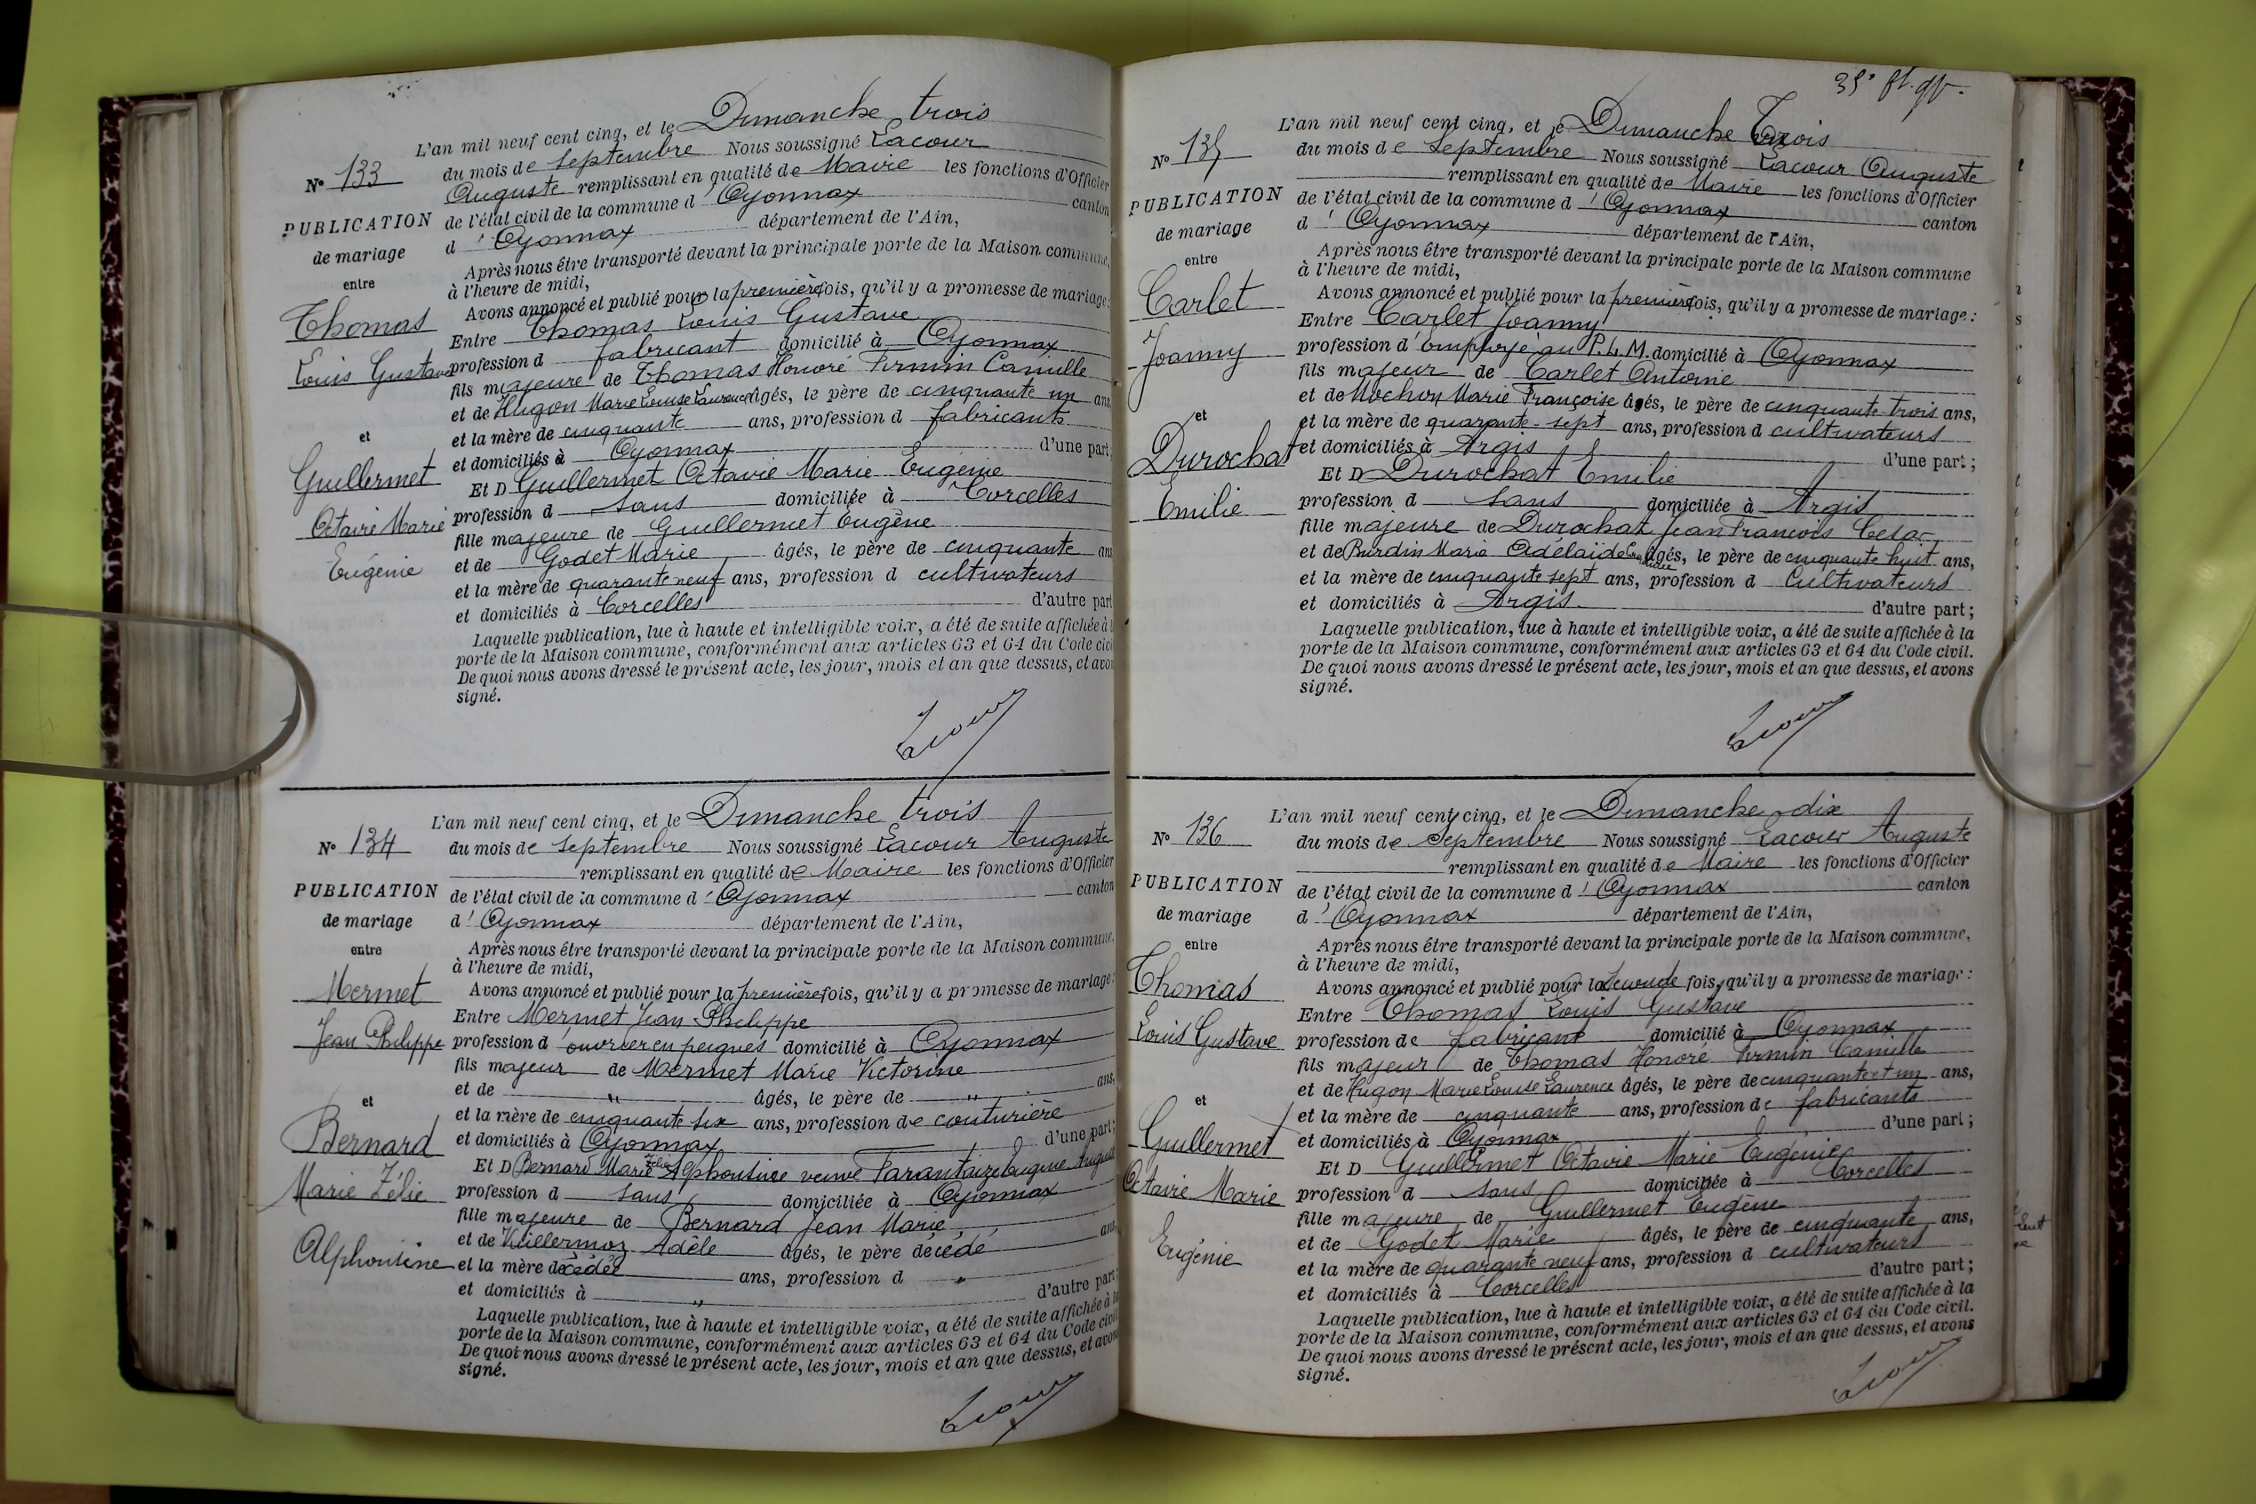 L'an mil neuf cent cinq, et le Dimanche trois
N° 133
du mois de septembre Nous soussigné Lacour
Auguste remplissant en qualité de Maire les fonctions d'Officier
PUBLICATION
de l'état civil de la commune d'Oyonnax canton
de mariage
d'Oyonnax département de l'Ain,
Après nous être transporté devant la principale porte de la Maison commune,
entre
à l'heure de midi,
Avons annoncé et publié pour la première fois, qu'il y a promesse de mariage :
Thomas
Louis Gustave
Entre Thomas Louis Gustave
profession d fabricant domicilié à Oyonnax
fils majeure de Thomas Honoré Firmin Camille
et de Hugon Marie Louise Laurence âgés, le père de cinquante un ans
et la mère de cinquante ans, profession d fabricants
et
et domiciliés à Oyonnax d'une part ;
Guillermet
Octavie Marie
Eugénie
Et D Guillermet Octavie Marie Eugénie
profession d sans domiciliée à Corcelles
fille majeure de Guillermet Eugène
et de Godet Marie âgés, le père de cinquante an
et la mère de quarante neuf ans, profession d cultivateurs
et domiciliés à Corcelles d'autre part
Laquelle publication, lue à haute et intelligible voix, a été de suite affichée à l
porte de la Maison commune, conformément aux articles 63 et 64 du Code civi
De quoi nous avons dressé le présent acte, les jour, mois et an que dessus, et avon
signé.
Lacour
L'an mil neuf cent cinq, et le Dimanche trois
N° 134
du mois de septembre Nous soussigné Lacour Auguste
remplissant en qualité de Maire les fonctions d'Officier
PUBLICATION
de l'état civil de la commune d'Oyonnax canton
de mariage
d'Oyonnax département de l'Ain,
entre
Après nous être transporté devant la principale porte de la Maison commune,
à l'heure de midi,
Avons annoncé et publié pour la première fois, qu'il y a promesse de mariage :
Mermet
Jean Philippe
Entre Mermet Jean Philippe
profession d'ouvrier en peignes domicilié à Oyonnax
fils majeur de Mermet Marie Victorine
et de " âgés, le père de " ans,
et
et la mère de cinquante six ans, profession de couturière
et domiciliés à Oyonnax d'une part ;
Bernard
Marie Zélie
Alphonsine
Et D Bernard Marie Zélie Alphonsine veuve Tarantaize Eugène August
profession d sans domiciliée à Oyonnax
fille majeure de Bernard Jean Marie
et de Vuillermoz Adèle âgés, le père décédé ans
et la mère décédée ans, profession d "
et domiciliés à " d'autre part
Laquelle publication, lue à haute et intelligible voix, a été de suite affichée à la
porte de la Maison commune, conformément aux articles 63 et 64 du Code civil
De quoi nous avons dressé le présent acte, les jour, mois et an que dessus, et avons
signé.
Lacour
L'an mil neuf cent cinq, et le Dimanche Trois
N° 135
du mois de septembre Nous soussigné Lacour Auguste
remplissant en qualité de Maire les fonctions d'Officier
PUBLICATION
de l'état civil de la commune d'Oyonnax canton
de mariage
d'Oyonnax département de l'Ain,
entre
Après nous être transporté devant la principale porte de la Maison commune
à l'heure de midi,
Avons annoncé et publié pour la première fois, qu'il y a promesse de mariage :
Carlet
Joanny
Entre Carlet Joanny
profession d'employé au P.L.M. domicilié à Oyonnax
fils majeur de Carlet Antoine
et de Mochon Marie Françoise âgés, le père de cinquante trois ans,
et
et la mère de quarante-sept ans, profession d cultivateurs
et domiciliés à Argis d'une part ;
Durochat
Emilie
Et D Durochat Emilie
profession d sans domiciliée à Argis
fille majeure de Durochat Jean François César
et de Burdin Marie Adélaïde âgés, le père de cinquante huit ans,
et la mère de cinquante sept ans, profession d Cultivateurs
et domiciliés à Argis d'autre part ;
Laquelle publication, lue à haute et intelligible voix, a été de suite affichée à la
porte de la Maison commune, conformément aux articles 63 et 64 du Code civil.
De quoi nous avons dressé le présent acte, les jour, mois et an que dessus, et avons
signé.
Lacour
L'an mil neuf cent cinq, et le Dimanche dix
N° 136
du mois de Septembre Nous soussigné Lacour Auguste
remplissant en qualité de Maire les fonctions d'Officier
PUBLICATION
de l'état civil de la commune d'Oyonnax canton
de mariage
d'Oyonnax département de l'Ain,
entre
Après nous être transporté devant la principale porte de la Maison commune,
à l'heure de midi,
Avons annoncé et publié pour la Seconde fois, qu'il y a promesse de mariage :
Thomas
Louis Gustave
Entre Thomas Louis Gustave
profession de fabricant domicilié à Oyonnax
fils majeur de Thomas Honoré Firmin Camille
et de Hugon Marie Louise Laurence âgés, le père de cinquante et un ans,
et
et la mère de cinquante ans, profession de fabricants
et domiciliés à Oyonnax d'une part ;
Guillermet
Octavie Marie
Eugénie
Et D Guillermet Octavie Marie Eugénie
profession d sans domiciliée à Corcelles
fille majeure de Guillermet Eugène
et de Godet Marie âgés, le père de cinquante ans,
et la mère de quarante neuf ans, profession d cultivateurs
et domiciliés à Corcelles d'autre part ;
Laquelle publication, lue à haute et intelligible voix, a été de suite affichée à la
porte de la Maison commune, conformément aux articles 63 et 64 du Code civil.
De quoi nous avons dressé le présent acte, les jour, mois et an que dessus, et avons
signé.
Lacour